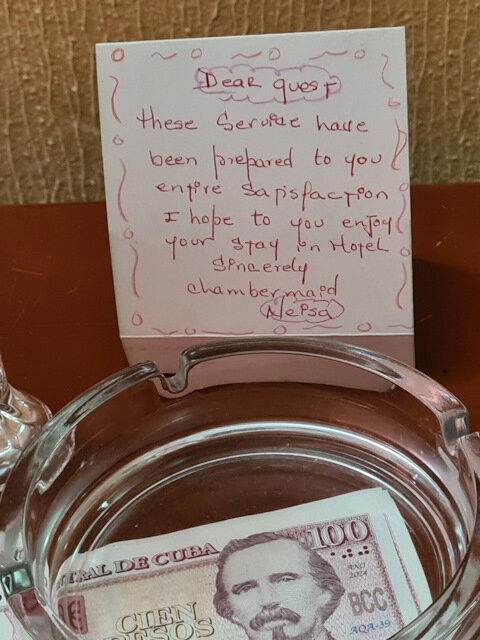 Dear guest
these Service have
been prepared to you
entire satisfaction
I hope to you enjoy
your stay in Hotel
Sincerely
chambermaid
Neisa
NTRAL DE CUBA 100
AÑO
2024
CIEN
PESOS
BCC
AQA-39